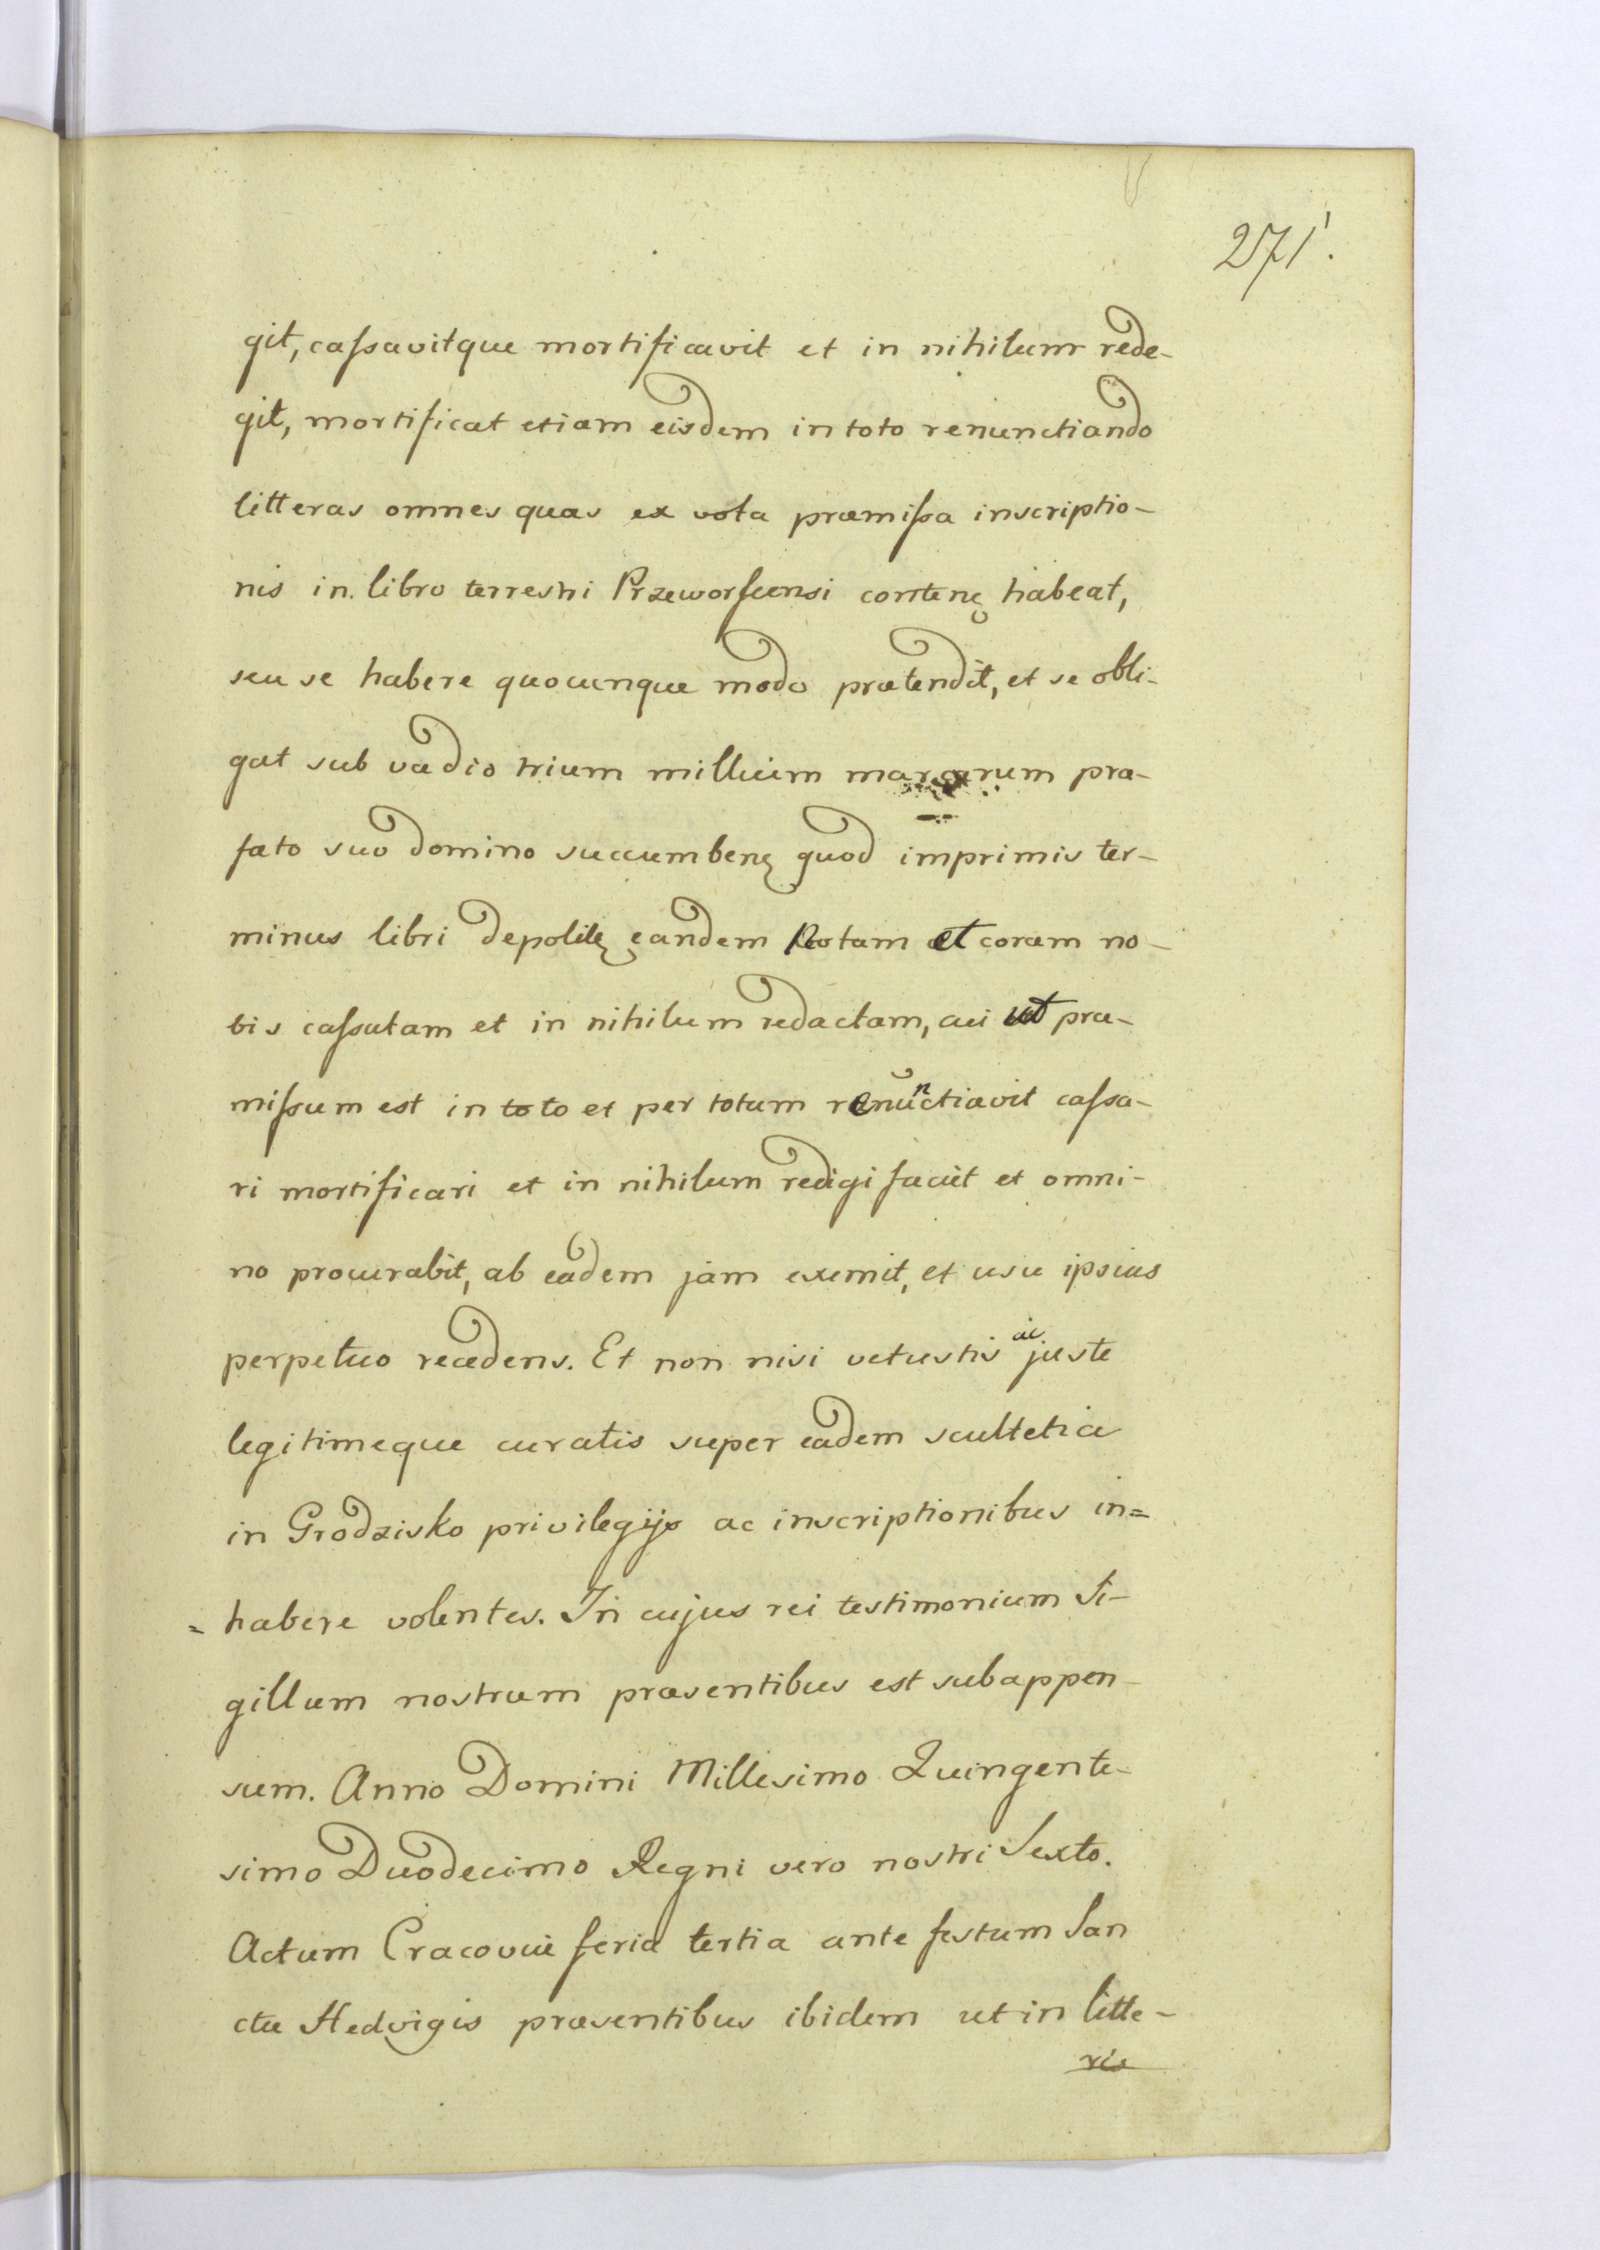 271.
git, cassavitque mortificavit et in nihilum rede-
git, mortificat etiam eisdem in toto renunctiando
litteras omnes quas ex vota præmissa inscriptio-
nis in libro terrestri Przeworscensi conteñ habeat,
seu se habere quocunque modo prætendit, et se obli-
gat sub vadio trium millium marcarum præ-
fato suo domino succumbenę quod imprimis ter-
minus libri eandem Rotam et coram no-
bis cassatam et in nihilum redactam, cui ut præ-
missum est in toto et per totum renunctiavit cassa-
ri mortificari et in nihilum redigi faciet et omni-
no procurabit, ab eadem jam exemit, et usu ipsius
perpetuo recedens. Et non nisi vetustis ac juste
legitimeque curatis super eadem scultetia
in Grodzisko privilegijs ac inscriptionibus in=
=habere volentes. In cujus rei testimonium Si-
gillum nostrum præsentibus est subappen-
sum. Anno Domini Millesimo Quingente-
simo Duodecimo Regni vero nostri Sexto.
Actum Cracoviæ feria tertia ante festum San
ctæ Hedvigis præsentibus ibidem ut in litte-
ris